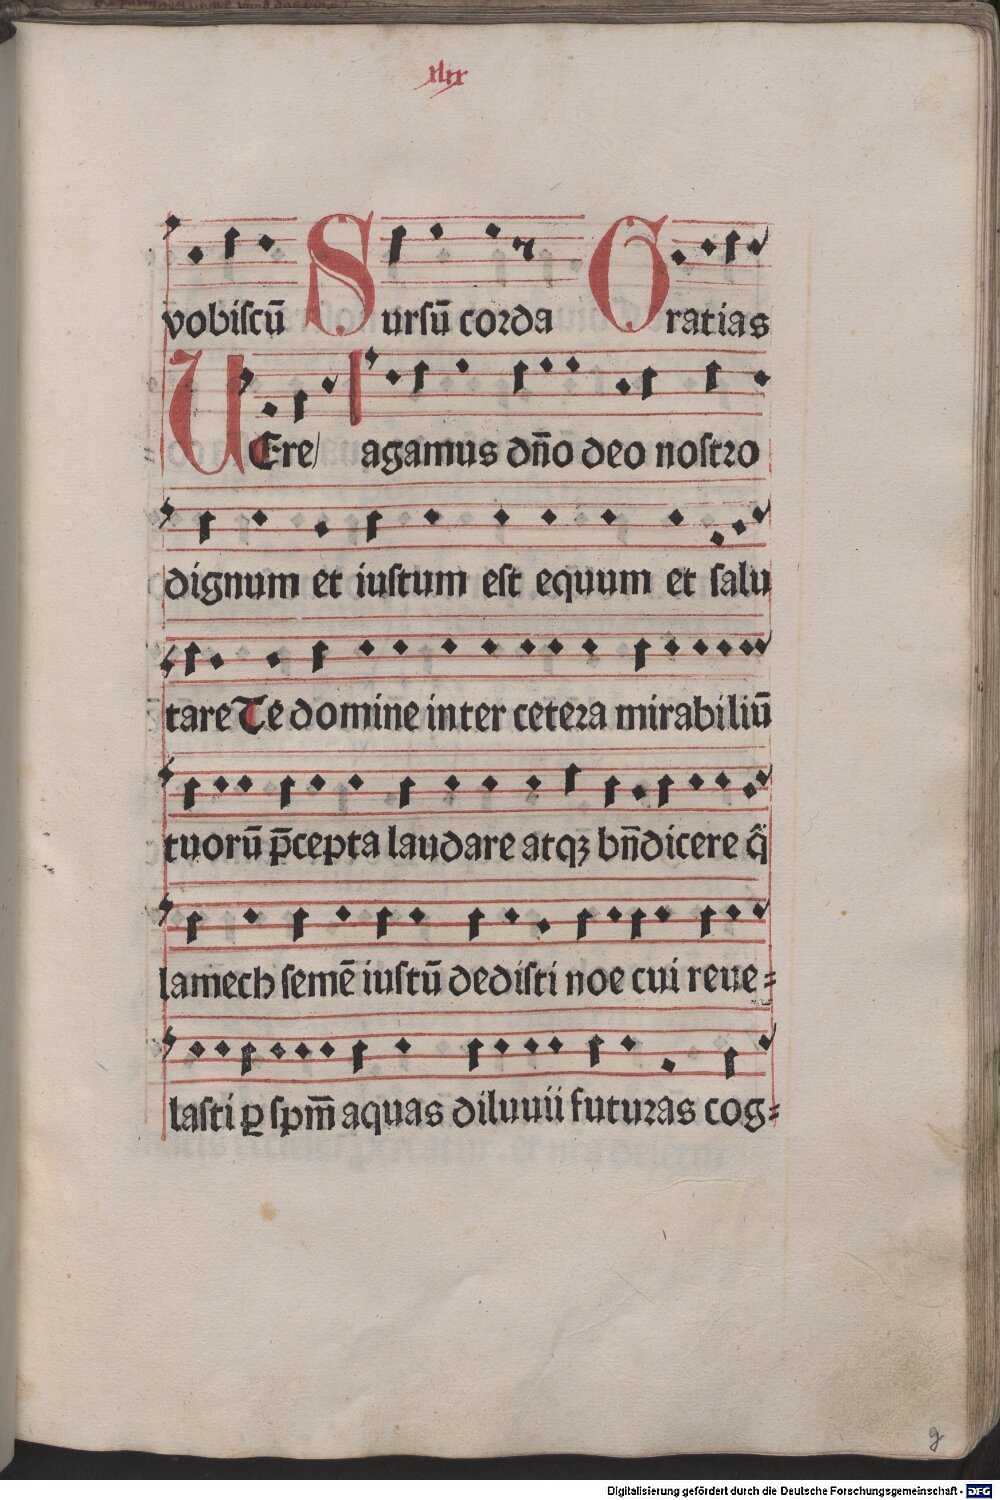 xlix
vobiscū Sursū corda Gratias
VEre/ agamus dn̄o deo nostro
dignum et iustum est equum et salu
tare Te domine inter cetera mirabiliū
tuorū p̄cepta laudare atqꝫ bn̄dicere q̄
lamech semē iustū dedisti noe cui reue=
lasti ꝑ spm̄ aquas diluuii futuras cog=
g
Digitalisierung gefördert durch die Deutsche Forschungsgemeinschaft - DFG